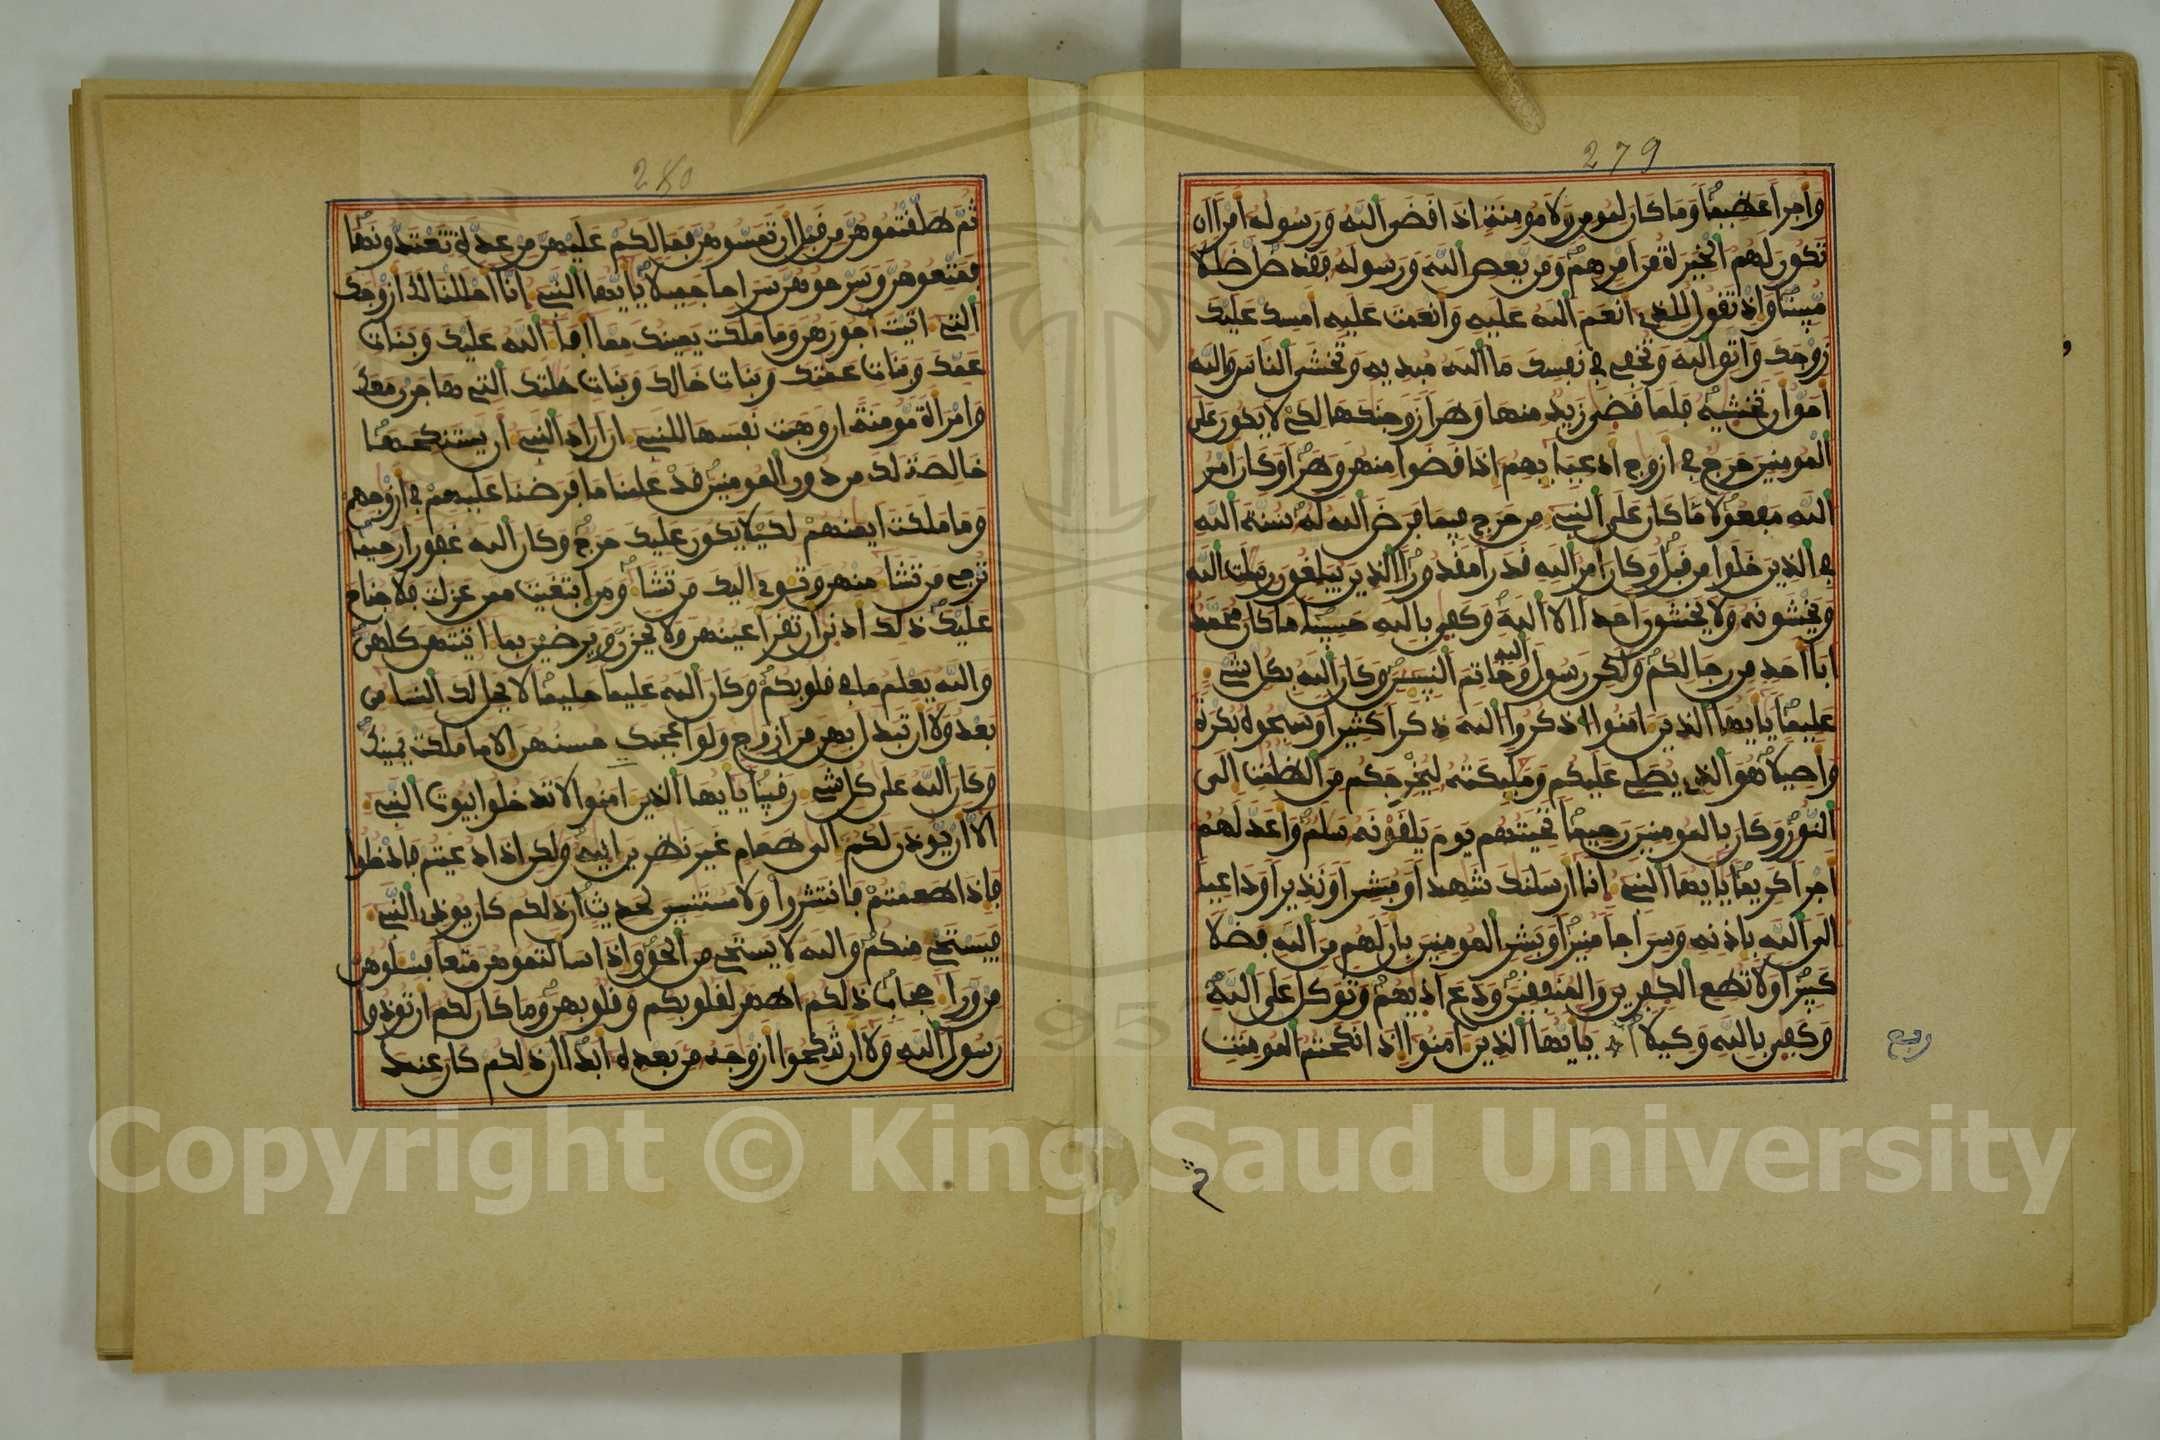 279
وأجرا عظيما وما كان لمومن ولا مومنة اذا قضى الله ورسوله أمرا ان
تكون لهم الخيرة من امرهم ومن يعص الله ورسوله فقد ضل ضللا
مبينا واذ تقول للذي انعم الله عليه وانعمت عليه امسك عليك
زوجك واتق الله وتخفي في نفسك ما الله مبديه وتخشى الناس والله
احق ان تخشيه فلما قضى زيد منها وطرا زوجنكها لكي لا يكون على
المومنين حرج في ازوج ادعيايهم اذا قضوا منهن وطرا وكان امر
الله مفعولا ما كان على النبي من حرج فيما فرض الله له سنة الله
في الذين خلوا من قبل وكان امر الله قدرا مقدورا الذين يبلغون رسلت الله
ويخشونه ولا يخشون احدا الا الله وكفى بالله حسيبا ما كان محمد
ابا احد من رجالكم ولكن رسول الله وخاتم النبيين وكان الله بكل شيء
عليما يايها الذين امنوا اذكروا الله ذكرا كثيرا وسبحوه بكرة
واصيلا هو الذي يصلي عليكم ومليكته ليخرجكم من الظلمت الى
النور وكان بالمومنين رحيما تحيتهم يوم يلقونه سلم واعد لهم
اجرا كريما يايها النبي انا ارسلنك شهدا ومبشرا ونذيرا وداعيا
الى الله باذنه وسراجا منيرا وبشر المومنين بان لهم من الله فضلا
كبيرا ولا تطع الكفرين والمنفقين ودع اذيهم وتوكل على الله
وكفى بالله وكيلا يايها الذين امنوا اذا نكحتم المومنت
ربع
280
ثم طلقتموهن من قبل ان تمسوهن فما لكم عليهن من عدة تعتدونها
فمتعوهن وسرحوهن سراحا جميلا يايها النبي انا احللنا لك ازوجك
التي اتيت اجورهن وما ملكت يمينك مما افاء الله عليك وبنات
عمك وبنات عمتك وبنات خالك وبنات خلتك التي هاجرن معك
وامراة مومنة ان وهبت نفسها للنبي ان اراد النبي ان يستنكحها
خالصة لك من دون المومنين قد علمنا ما فرضنا عليهم في ازوجهم
وما ملكت ايمنهم لكيلا يكون عليك حرج وكان الله غفورا رحيما
ترجي من تشا منهن وتـوي اليك من تشا ومن ابتغيت ممن عزلت فلا جناح
عليك ذلك ادنى ان تقر اعينهن ولا يحزن ويرضين بما اتيتهن كلهن
والله يعلم ما في قلوبكم وكان الله عليما حليما لا يحل لك النسا من
بعد ولا ان تبدل بهن من ازوج ولو اعجبك حسنهن الا ما ملكت يمينك
وكان الله على كل شيء رقيبا يايها الذين امنوا لا تدخلوا بيوت النبي
الا ان يوذن لكم الى طعام غير نظرين انيه ولكن اذا دعيتم فادخلوا
فاذا طعمتم فانتشروا ولا مستنسين لحديث ان ذلكم كان يوذي النبي
فيستحي منكم والله لا يستحي من الحق واذا سالتموهن متعا فسلوهن
من وراء حجاب ذلكم اطهر لقلوبكم وقلوبهن وما كان لكم ان توذوا
رسول الله ولا ان تنكحوا ازوجه من بعده ابدا ان ذلكم كان عند
Copyright © King Saud University